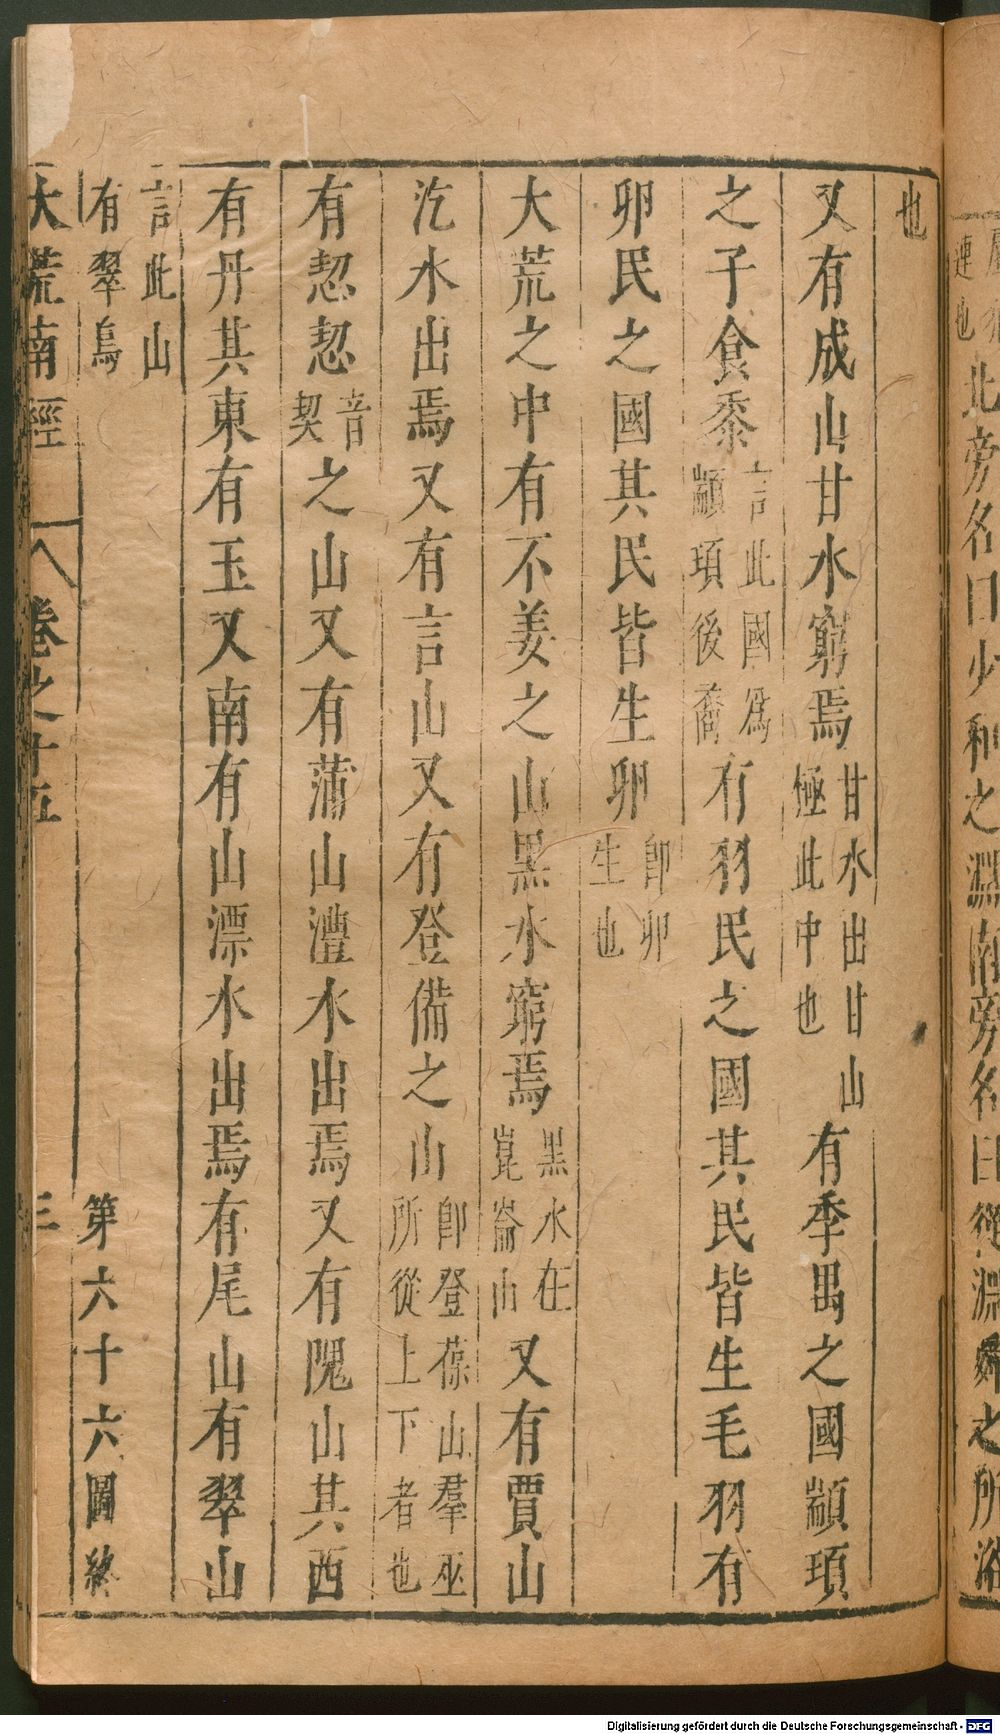 連也
北旁名曰少和之淵南旁名曰從淵舜之所浴
也
又有成山甘水窮焉甘水出甘山極此中也有季禺之國顓頊
之子食黍言此國爲顓頊後裔有羽民之國其民皆生毛羽有
卵民之國其民皆生卵卽卵生也
大荒之中有不姜之山黑水窮焉黑水在崑崙山又有賈山
汔水出焉又有言山又有登備之山卽登葆山羣巫所從上下者也
有恝恝音契之山又有蒲山澧水出焉又有隗山其西
有丹其東有玉又南有山漂水出焉有尾山有翠山
言此山有翠鳥
第六十六圖終
大荒南經 卷之十五 三
Digitalisierung gefördert durch die Deutsche Forschungsgemeinschaft - DFG